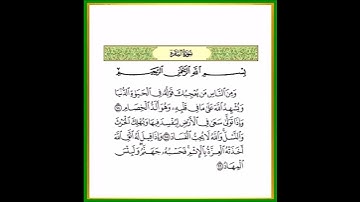 سورة البقرة
بسم الله الرحمن الرحيم
ومن الناس من يعجبك قوله في الحيوة الدنيا
ويشهد الله على ما في قلبه وهو ألد الخصام
وإذا تولى سعى في الأرض ليفسد فيها ويهلك الحرث
والنسل والله لا يحب الفساد وإذا قيل له اتق الله
أخذته العزة بالإثم فحسبه جهنم ولبئس
المهاد